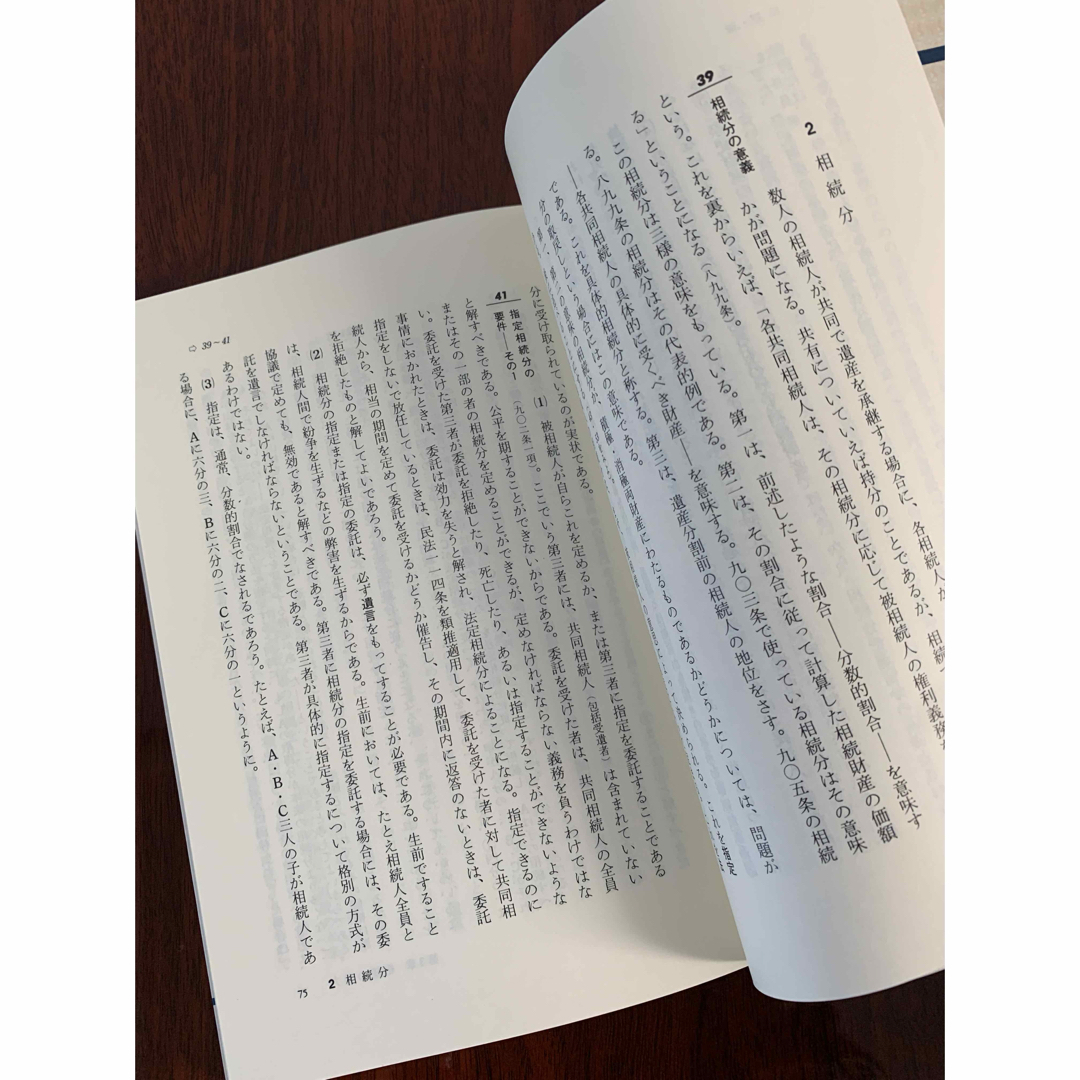 2 相続分
39 相続分の意義
数人の相続人が共同で遺産を承継する場合に、各相続人が、相続
かが問題になる。共有についていえば持分のことであるが、
という。これを裏からいえば、「各共同相続人は、その相続分に応じて被相続人の権利義務を
る」ということになる(八九九条)。
この相続分は三様の意味をもっている。第一は、前述したような割合――分数的割合――を意味す
る。八九九条の相続分はその代表的例である。第二は、その割合に従って計算した相続財産の価額
――各共同相続人の具体的に受くべき財産――を意味する。九〇三条で使っている相続分はその意味
である。これを具体的相続分と称する。第三は、遺産分割前の相続人の地位をさす。九〇五条の相続
分の取戻しという場合にはこの意味である。
積極・消極両財産にわたるものであるかどうかについては、問題が
これを指定
分に受け取られているのが実状である。
41 指定相続分の
要件――その1
(1) 被相続人が自らこれを定めるか、または第三者に指定を委託することである
(九〇二条一項)。ここでいう第三者には、共同相続人(包括受遺者)は含まれていない
と解すべきである。公平を期することができないからである。委託を受けた者は、共同相続人の全員
またはその一部の者の相続分を定めることができるが、定めなければならない義務を負うわけではな
い。委託を受けた第三者が委託を拒絶したり、死亡したり、あるいは指定することができないような
事情におかれたときは、委託は効力を失うと解され、法定相続分によることになる。指定できるのに
指定をしないで放任しているときは、民法一一四条を類推適用して、委託を受けた者に対して共同相
続人から、相当の期間を定めて委託を受けるかどうか催告し、その期間内に返答のないときは、委託
を拒絶したものと解してよいであろう。
(2) 相続分の指定または指定の委託は、必ず遺言をもってすることが必要である。生前ですること
は、相続人間で紛争を生ずるなどの弊害を生ずるからである。生前においては、たとえ相続人全員と
協議で定めても、無効であると解すべきである。第三者に相続分の指定を委託する場合には、その委
託を遺言でしなければならないということである。第三者が具体的に指定するについて格別の方式が
あるわけではない。
(3) 指定は、通常、分数的割合でなされるであろう。たとえば、A・B・C三人の子が相続人であ
る場合に、Aに六分の三、Bに六分の二、Cに六分の一というように。
⇨ 39~41
2 相続分
75